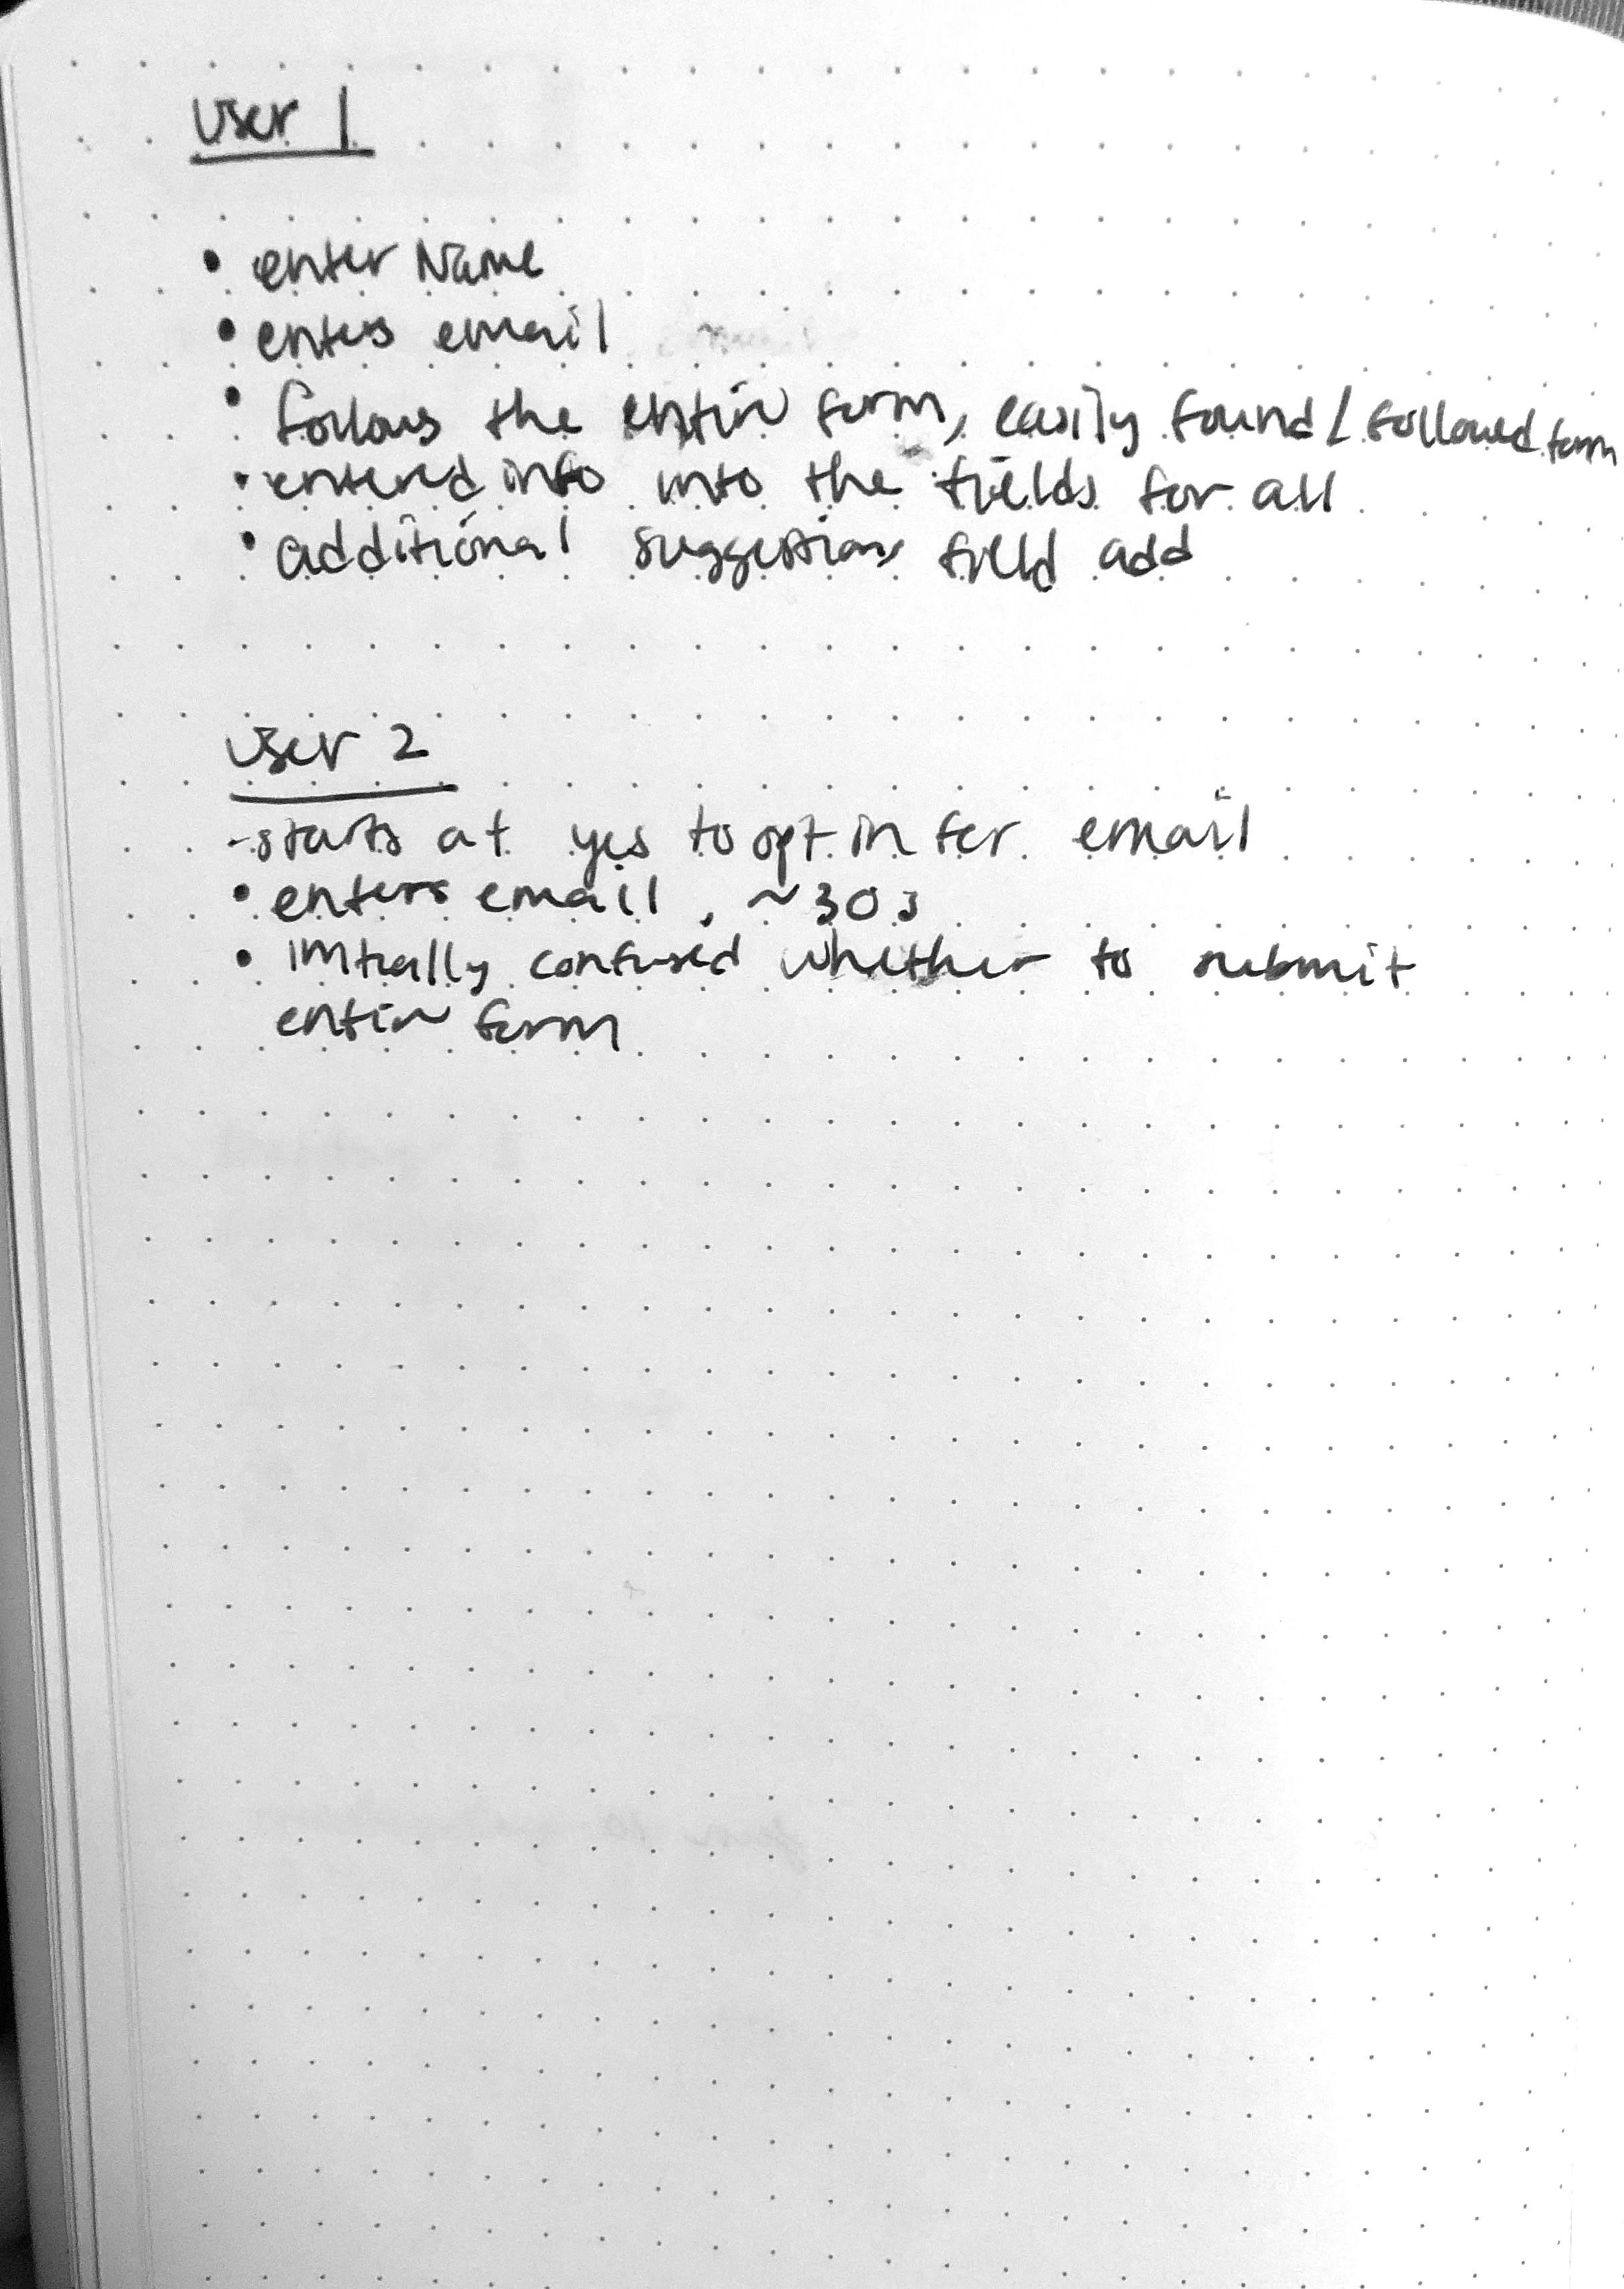 User 1
• enter Name
• enters email
• follows the entire form, easily found/followed form
• entered info into the fields for all
• additional suggestions field add
User 2
- starts at yes to opt in for email
• enters email, ~30s
• initially confused whether to submit
entire form